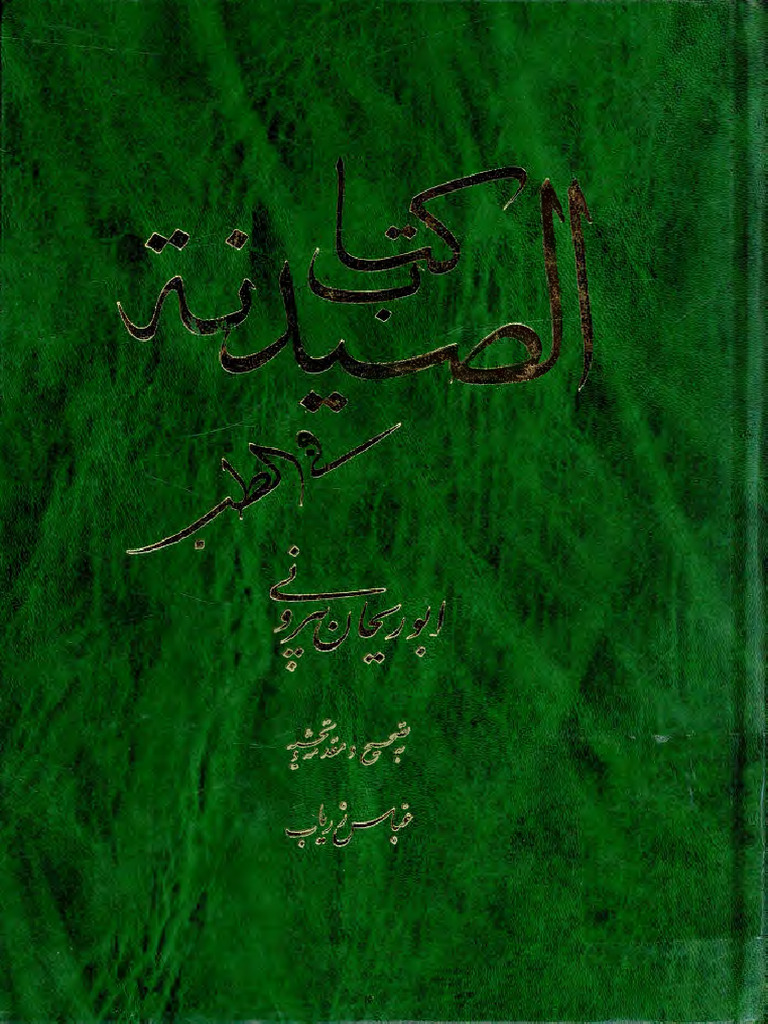 كتاب
الصيدنة
فی الطب
ابوریحان بیرونی
به تصحیح و مقدمه و تحشیه
عباس زریاب